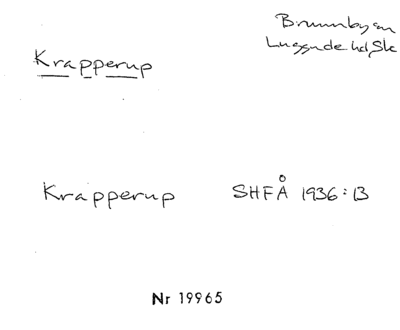 Brunnby sn
Luggude hd, Sk
Krapperup
Krapperup SHFÅ 1936:13
Nr 19965